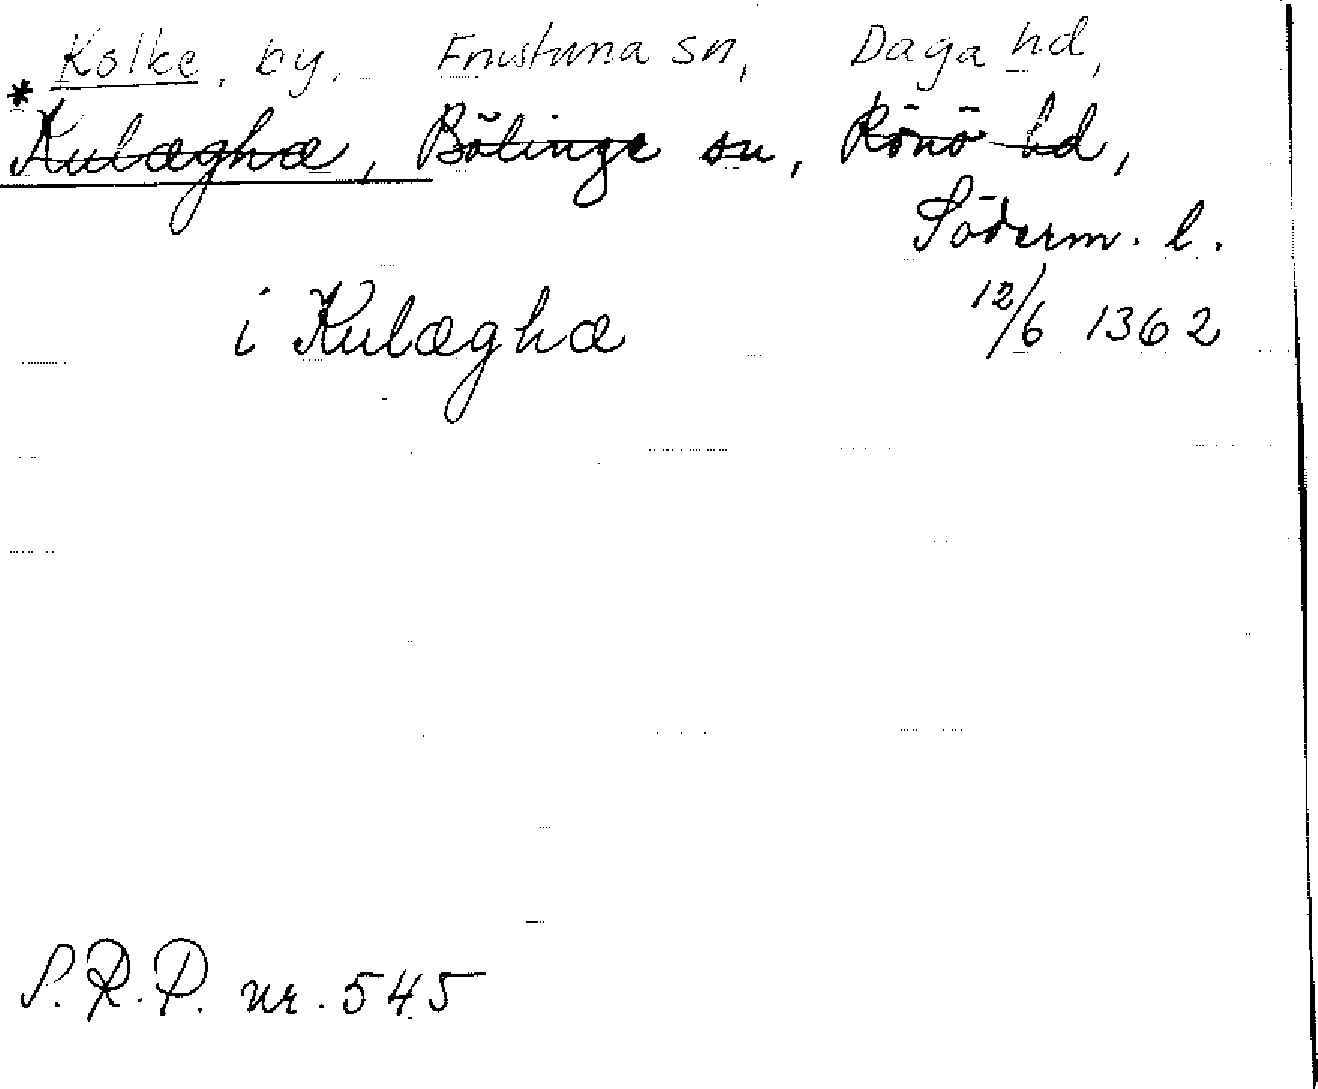 Kolke, by, Frustuna sn, Daga hd,
* Kulæghæ, Bälinge sn, Rönö hd,
Söderm. l.
i Kulæghæ 12/6 1362
S.R.P. nr. 545